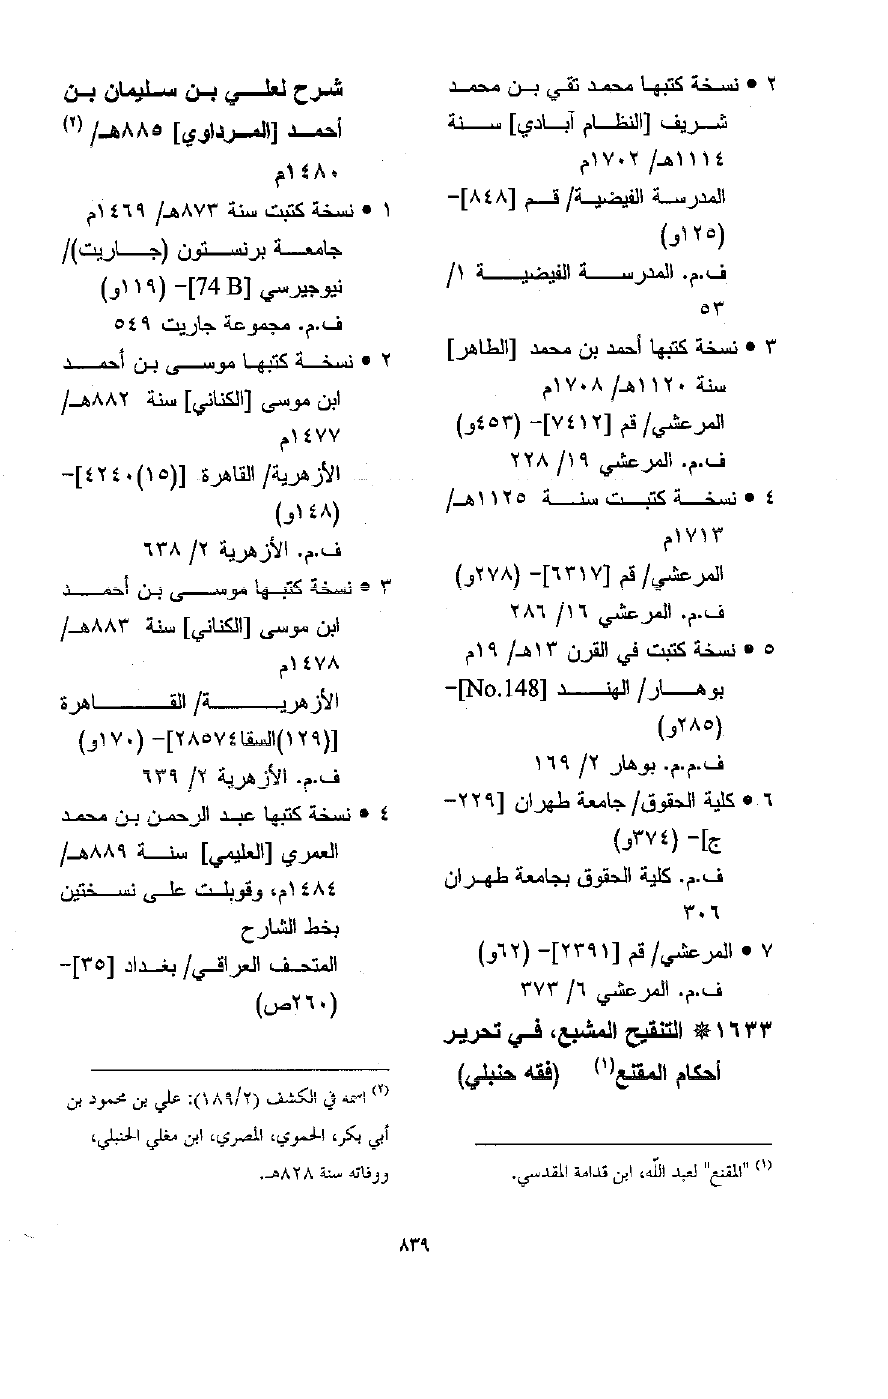 ٢ • نسخة كتبها محمد تقي بن محمد
شريف [النظام آبادي] سنة
١١١٤هـ/ ١٧٠٢م
المدرسة الفيضية/ قم [٨٤٨]-
(١٢٥و)
ف.م. المدرسة الفيضية ١/
٥٣
٣ • نسخة كتبها أحمد بن محمد [الطاهر]
سنة ١١٢٠هـ/ ١٧٠٨م
المرعشي/ قم [٧٤١٢]- (٤٥٣و)
ف.م. المرعشي ١٩/ ٢٢٨
٤ • نسخة كتبت سنة ١١٢٥هـ/
١٧١٣م
المرعشي/ قم [٦٣١٧]- (٢٧٨و)
ف.م. المرعشي ١٦/ ٢٨٦
٥ • نسخة كتبت في القرن ١٣هـ/ ١٩م
بوهار/ الهند [No.148]-
(٢٨٥و)
ف.م.م. بوهار ٢/ ١٦٩
٦ • كلية الحقوق/ جامعة طهران [٢٢٩-
ج]- (٣٧٤و)
ف.م. كلية الحقوق بجامعة طهران
٣٠٦
٧ • المرعشي/ قم [٢٣٩١]- (٦٢و)
ف.م. المرعشي ٦/ ٣٧٣
١٦٣٣ * التنقيح المشبع، في تحرير
أحكام المقنع(١) (فقه حنبلي)
(١) "المقنع" لعبد الله، ابن قدامة المقدسي.
شرح لعلي بن سليمان بن
أحمد [المرداوي] ٨٨٥هـ/ (٢)
١٤٨٠م
١ • نسخة كتبت سنة ٨٧٣هـ/ ١٤٦٩م
جامعة برنستون (جاريت)/
نيوجيرسي [74 B]- (١١٩و)
ف.م. مجموعة جاريت ٥٤٩
٢ • نسخة كتبها موسى بن أحمد
ابن موسى [الكناني] سنة ٨٨٢هـ/
١٤٧٧م
الأزهرية/ القاهرة [(١٥)٤٢٤٠]-
(١٤٨و)
ف.م. الأزهرية ٢/ ٦٣٨
٣ • نسخة كتبها موسى بن أحمد
ابن موسى [الكناني] سنة ٨٨٣هـ/
١٤٧٨م
الأزهرية/ القاهرة
[(١٢٩)السقا٢٨٥٧٤]- (١٧٠و)
ف.م. الأزهرية ٢/ ٦٣٩
٤ • نسخة كتبها عبد الرحمن بن محمد
العمري [العليمي] سنة ٨٨٩هـ/
١٤٨٤م، وقوبلت على نسختين
بخط الشارح
المتحف العراقي/ بغداد [٣٥]-
(٢٦٠ص)
(٢) اسمه في الكشف (١٨٩/٢): علي بن محمود بن
أبي بكر، الحموي، المصري، ابن مغلي الحنبلي،
ووفاته سنة ٨٢٨هـ.
٨٣٩